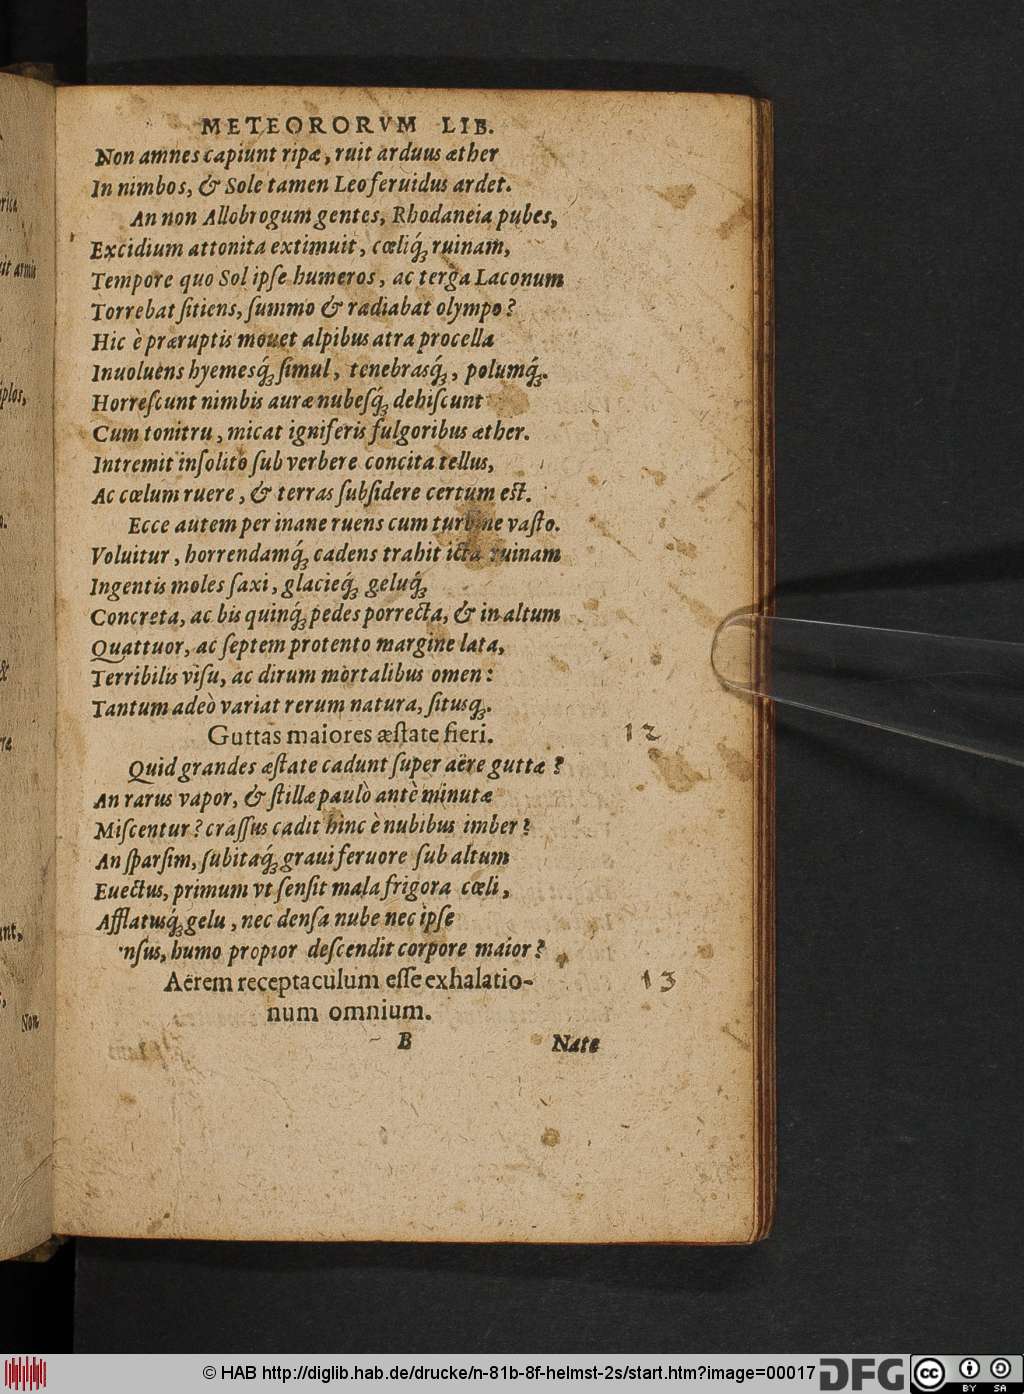 METEORORVM LIB.
Non amnes capiunt ripæ, ruit arduus æther
In nimbos, & Sole tamen Leo feruidus ardet.
An non Allobrogum gentes, Rhodaneia pubes,
Excidium attonita extimuit, cœliq́; ruinam,
Tempore quo Sol ipſe humeros, ac terga Laconum
Torrebat ſitiens, ſummo & radiabat olympo?
Hic è præruptis mouet alpibus atra procella
Inuoluens hyemesq́; ſimul, tenebrasq́;, polumq́;.
Horreſcunt nimbis auræ nubeſq́; dehiſcunt
Cum tonitru, micat igniferis fulgoribus æther.
Intremit inſolito ſub verbere concita tellus,
Ac cœlum ruere, & terras ſubſidere certum eſt.
Ecce autem per inane ruens cum turbine vaſto.
Voluitur, horrendamq́; cadens trahit icta ruinam
Ingentis moles ſaxi, glacieq́; geluq́;
Concreta, ac bis quinq́; pedes porrecta, & in altum
Quattuor, ac ſeptem protento margine lata,
Terribilis viſu, ac dirum mortalibus omen:
Tantum adeò variat rerum natura, ſitusq́;.
Guttas maiores æſtate fieri. 12
Quid grandes æſtate cadunt ſuper aëre guttæ?
An rarus vapor, & ſtillæ paulò antè minutæ
Miſcentur? craſſus cadit hinc è nubibus imber?
An ſparſim, ſubitaq́; graui feruore ſub altum
Euectus, primum vt ſenſit mala frigora cœli,
Afflatusq́; gelu, nec denſa nube nec ipſe
nſus, humo propior deſcendit corpore maior?
Aërem receptaculum eſſe exhalatio- 13
num omnium.
B Nate
rica
uit armis
iplos,
o.
&
rra
unt,
s,
Non
© HAB http://diglib.hab.de/drucke/n-81b-8f-helmst-2s/start.htm?image=00017
DFG
cc
BY SA